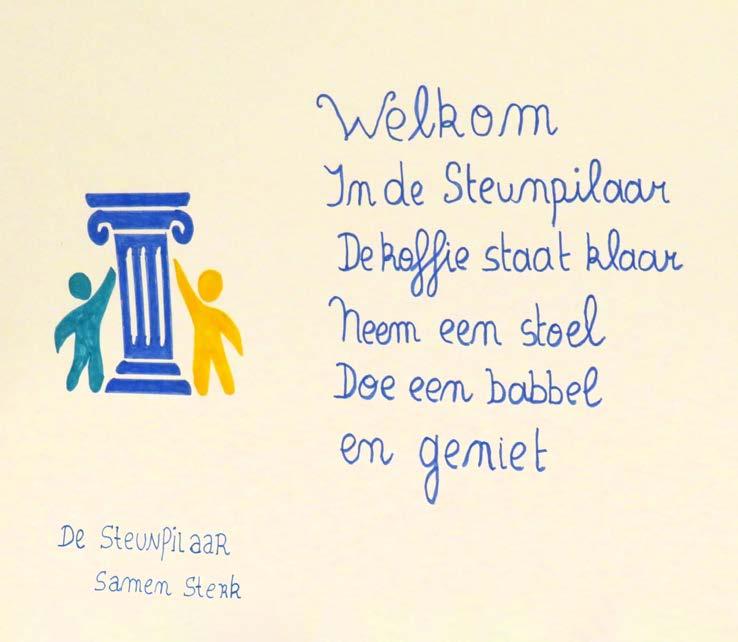 Welkom
In de Steunpilaar
De koffie staat klaar
Neem een stoel
Doe een babbel
en geniet
De Steunpilaar
Samen Sterk